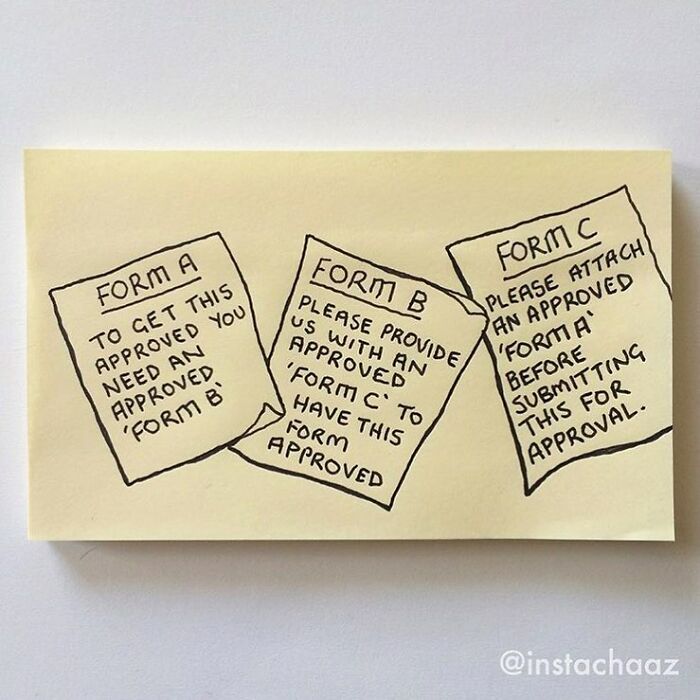 FORM A
TO GET THIS
APPROVED YOU
NEED AN
APPROVED
'FORM B'
FORM B
PLEASE PROVIDE
US WITH AN
APPROVED
'FORM C' TO
HAVE THIS
FORM
APPROVED
FORM C
PLEASE ATTACH
AN APPROVED
'FORM A'
BEFORE
SUBMITTING
THIS FOR
APPROVAL.
@instachaaz